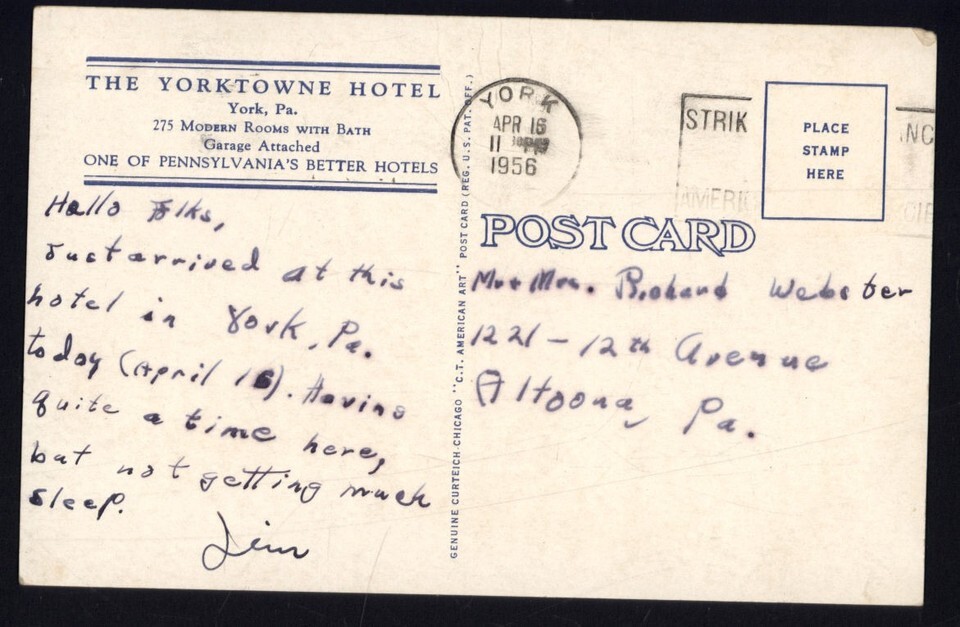 THE YORKTOWNE HOTEL
York, Pa.
275 MODERN ROOMS WITH BATH
Garage Attached
ONE OF PENNSYLVANIA'S BETTER HOTELS
Hello Folks,
Just arrived at this
hotel in York, Pa.
today (April 16). Having
quite a time here,
but not getting much
sleep.
Jim
GENUINE CURTEICH-CHICAGO "C.T. AMERICAN ART" POST CARD (REG. U.S. PAT. OFF.)
YORK
APR 16
11 PM
1956
STRIK
NC
AMERIC
CIE
PLACE
STAMP
HERE
POST CARD
Mr + Mrs. Richard Webster
1221 - 12th Avenue
Altoona, Pa.